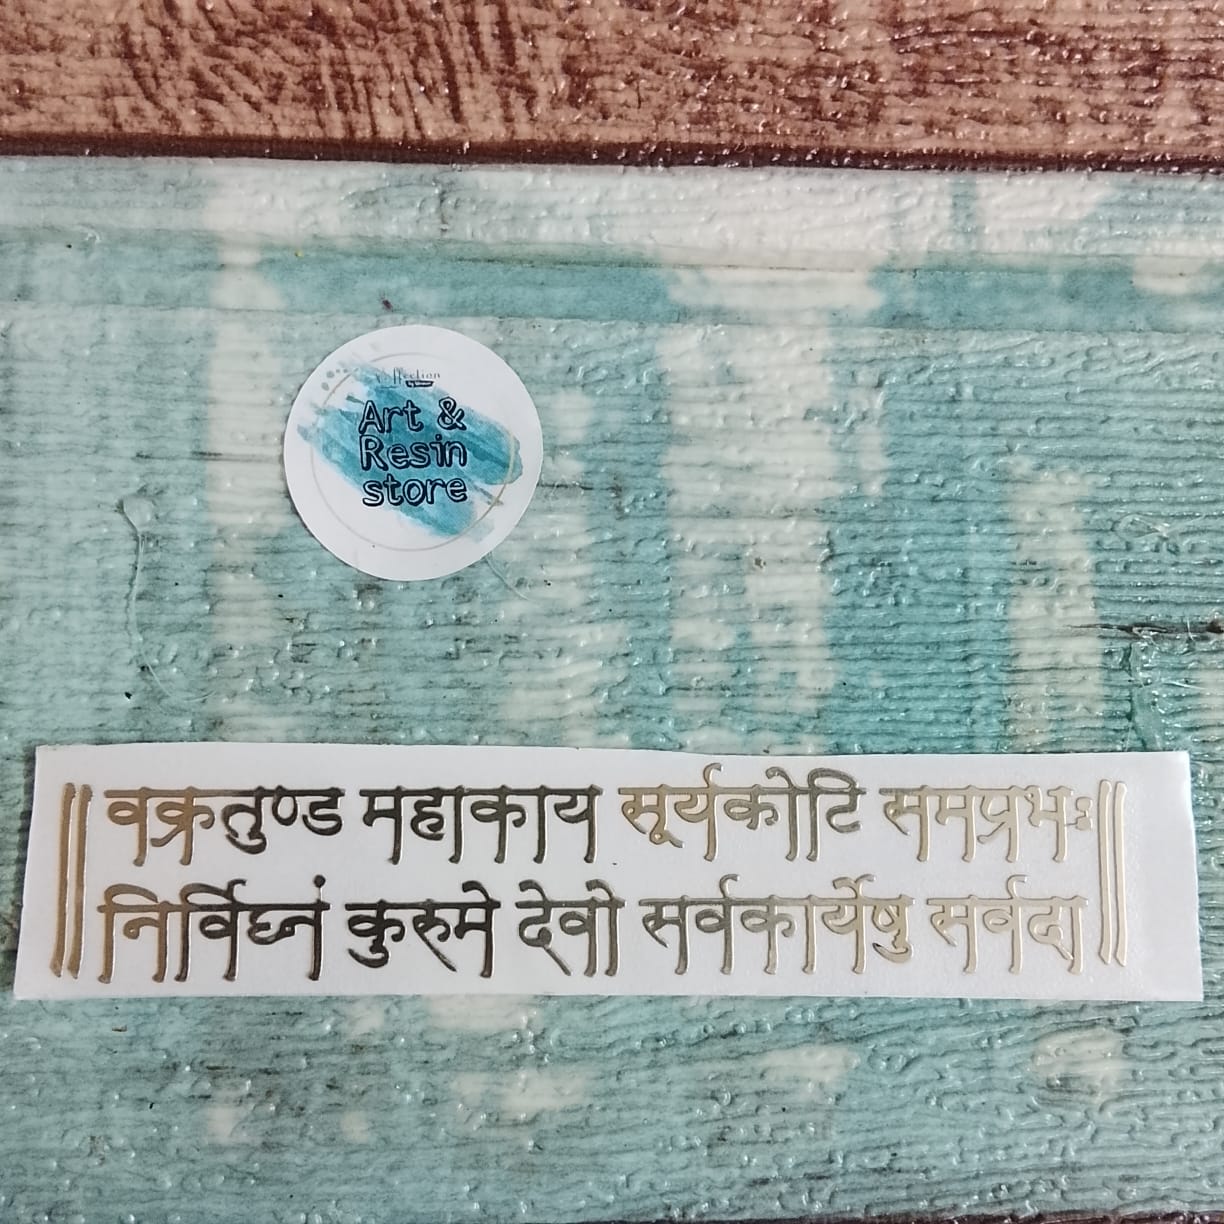 Art &
Resin
store
॥ वक्रतुण्ड महाकाय सूर्यकोटि समप्रभः ॥
निर्विघ्नं कुरुमे देवो सर्वकार्येषु सर्वदा